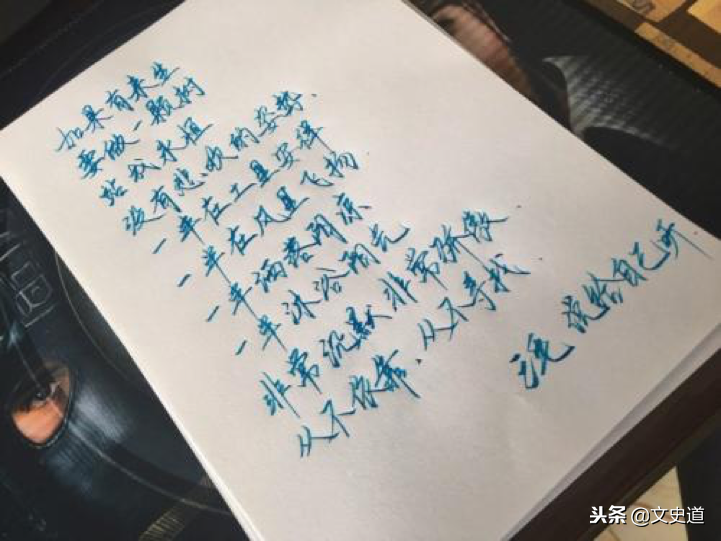 如果有来生
要做一颗树
站成永恒
没有悲欢的姿势.
一半在土里安详
一半在风里飞扬
一半洒落阴凉
一半沐浴阳光
非常沉默 非常骄傲
从不依靠、从不寻找.
三毛 说给自己听
头条 @文史道